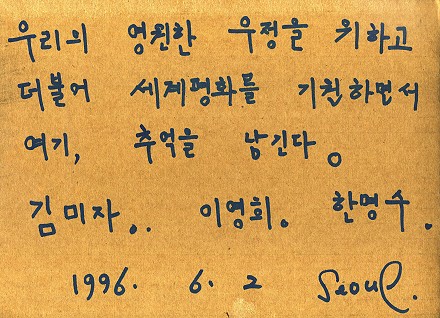 우리의 영원한 우정을 위하고
더불어 세계평화를 기원하면서
여기, 추억을 남긴다.
김미자.. 이영희. 한명수.
1996. 6. 2 Seoul.